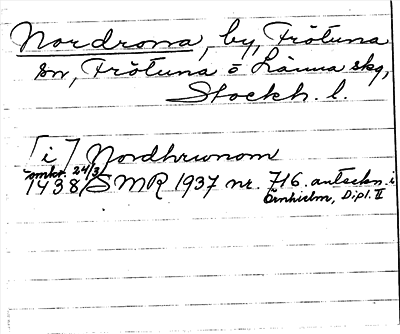 Nordrona, by, Frötuna
sn, Frötuna o Länna skg,
Stockh. l.
[i] Nordhrwnom
omkr. 24/3
1438 SMR 1937 nr. 716. anteckn. i
Örnhielm, Dipl. II